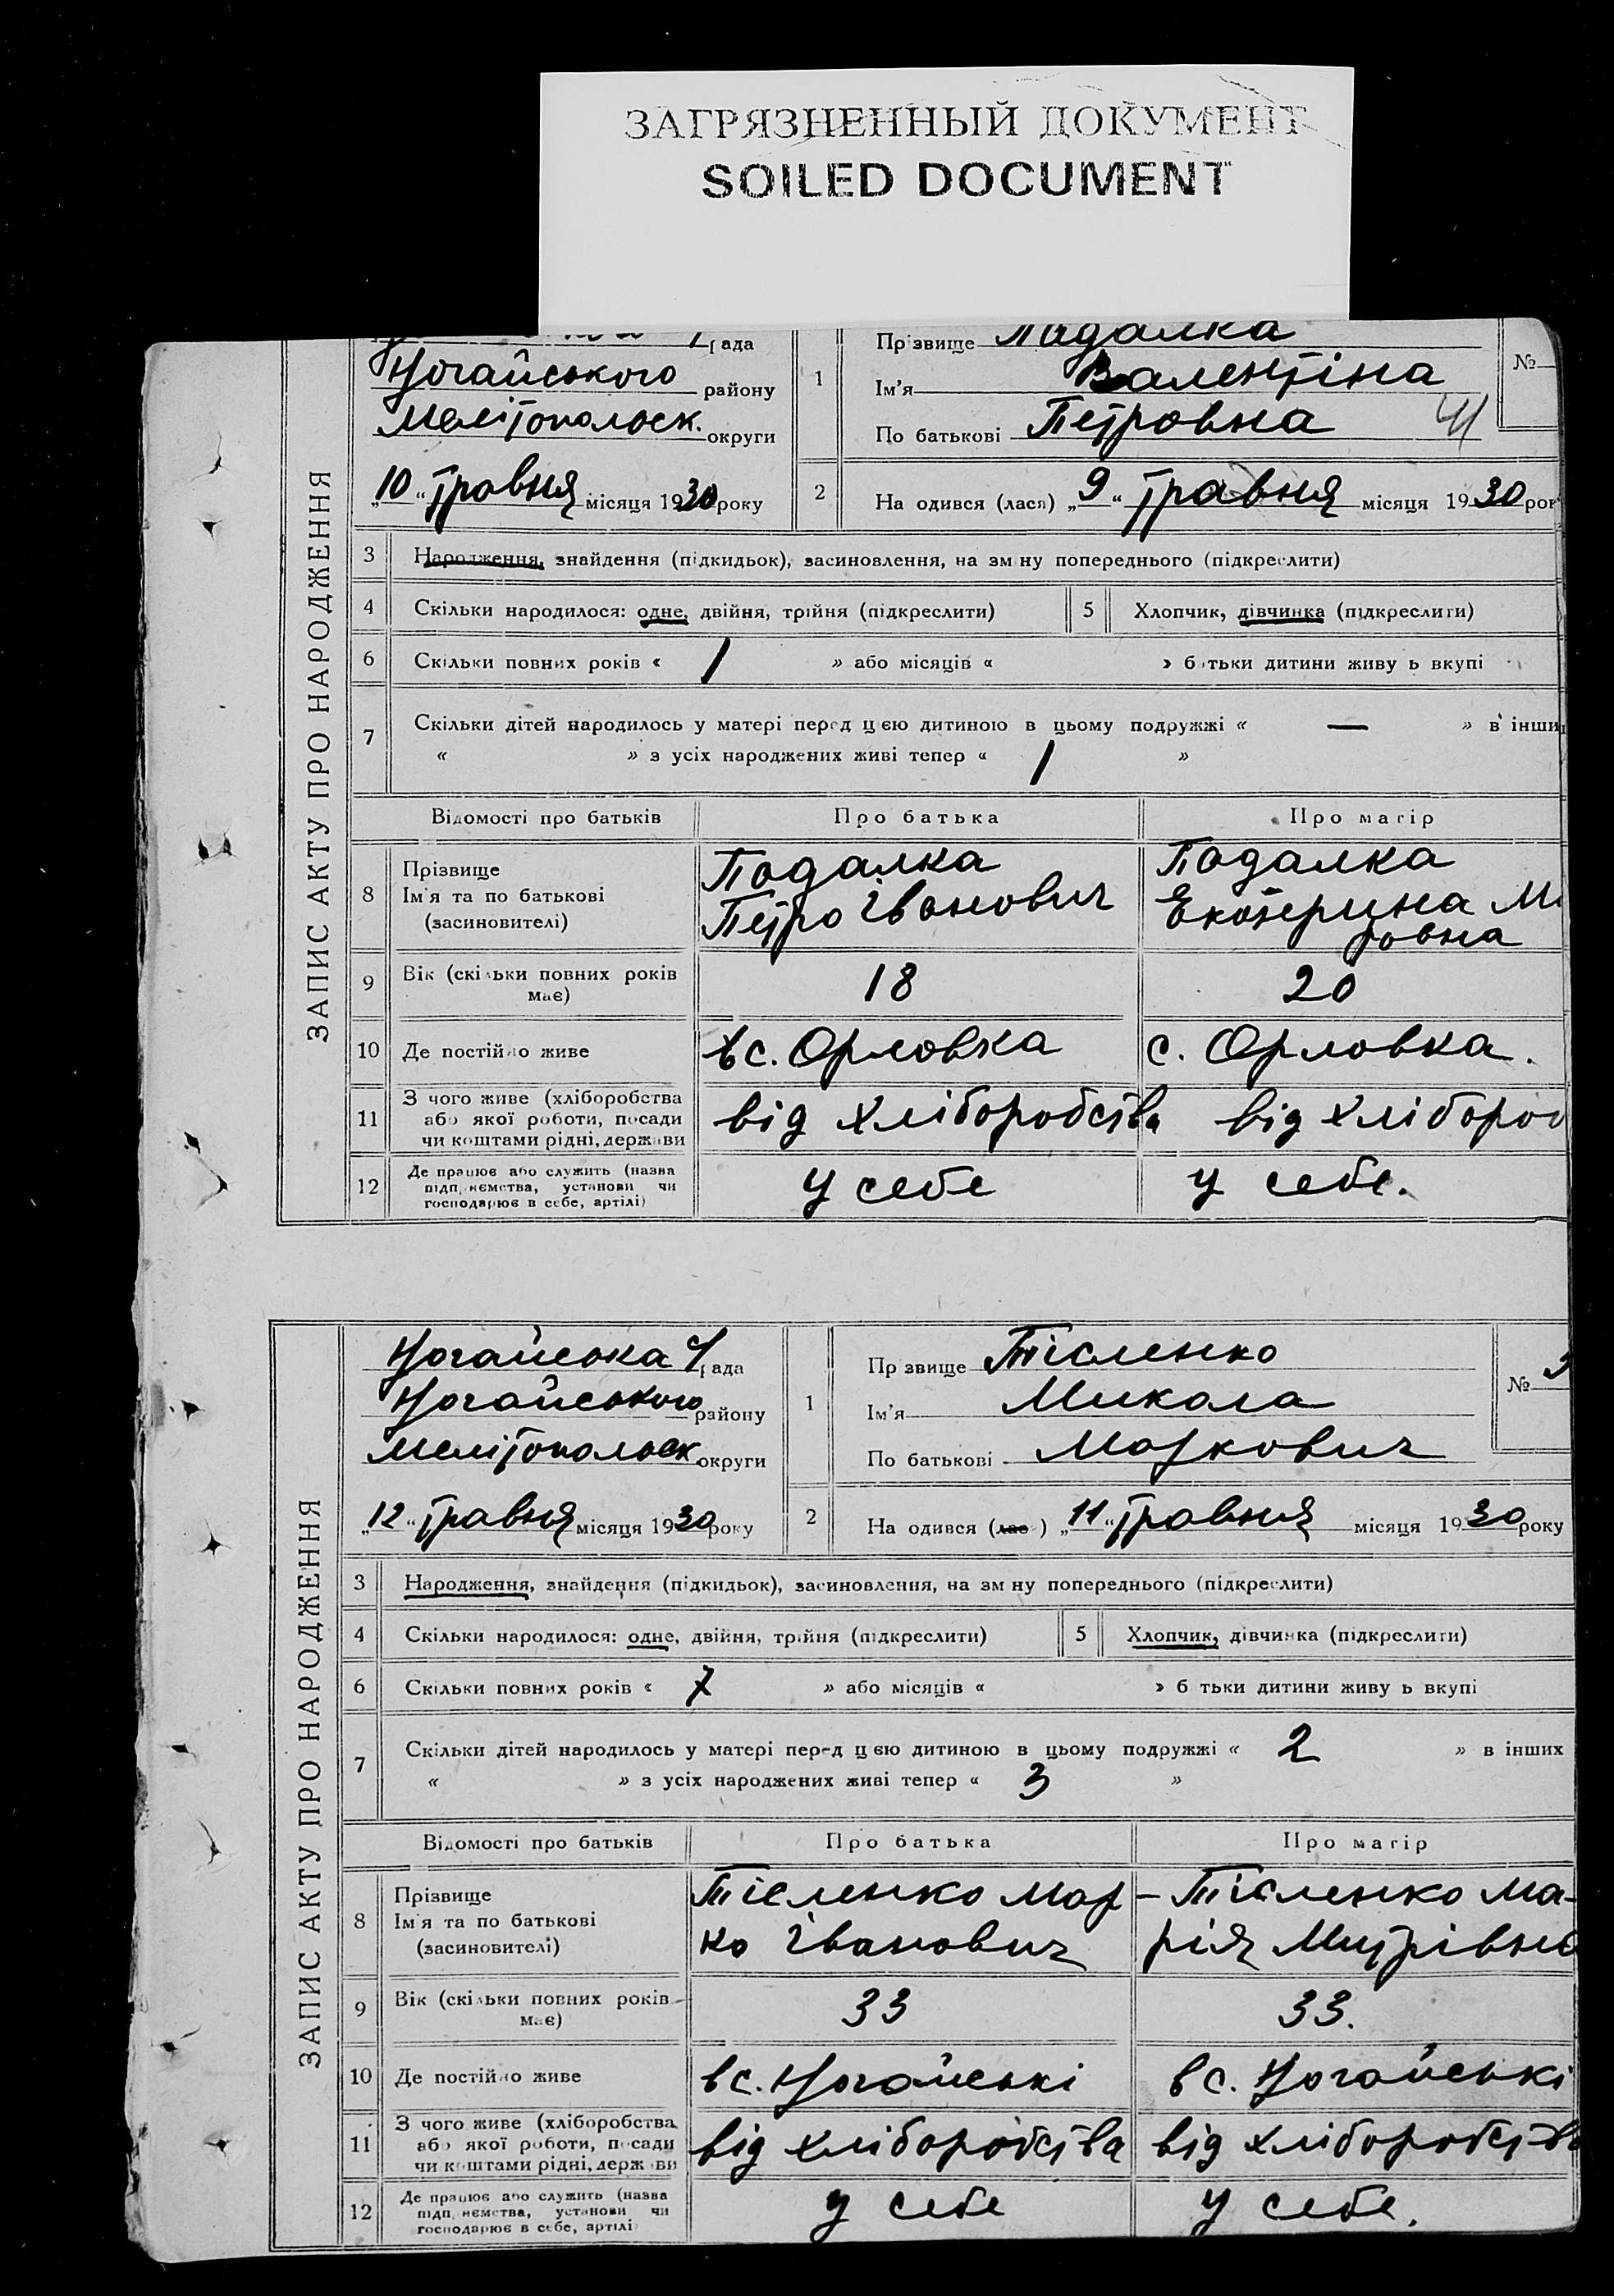 ЗАГРЯЗНЕННЫЙ ДОКУМЕНТ
SOILED DOCUMENT
рада
Ногайського району
Мелітопольськ. округи
„10“ травня місяця 1930 року
1
Прізвище Подалка
Ім'я Валентіна
По батькові Петровна
41
№
2
Народився (лася) „9“ травня місяця 1930 рок
ЗАПИС АКТУ ПРО НАРОДЖЕННЯ
3 Народження, знайдення (підкидьок), засиновлення, на зміну попереднього (підкреслити)
4 Скільки народилося: одне, двійня, трійня (підкреслити)
5 Хлопчик, дівчинка (підкреслити)
6 Скільки повних років « 1 » або місяців « » батьки дитини живуть вкупі
7 Скільки дітей народилось у матері перед цією дитиною в цьому подружжі « — » в інши
« » з усіх народжених живі тепер « 1 »
Відомості про батьків Про батька Про матір
8 Прізвище
Ім'я та по батькові
(засиновителі)
Подалка
Петро Іванович
Подалка
Екатерина М
ровна
9 Вік (скільки повних років
має)
18 20
10 Де постійно живе в с. Орловка с. Орловка.
11 З чого живе (хліборобства
або якої роботи, посади
чи коштами рідні, держави
від хліборобства від хлібороб
12 Де працює або служить (назва
підприємства, установи чи
господарює в себе, артілі)
у себе у себе.
Ногайська рада
Ногайського району
Мелітопольськ округи
„12“ травня місяця 1930 року
1
Прізвище Тісленко
Ім'я Микола
По батькові Маркович
№
2
Народився (лася) „11“ травня місяця 1930 року
ЗАПИС АКТУ ПРО НАРОДЖЕННЯ
3 Народження, знайдення (підкидьок), засиновлення, на зміну попереднього (підкреслити)
4 Скільки народилося: одне, двійня, трійня (підкреслити)
5 Хлопчик, дівчинка (підкреслити)
6 Скільки повних років « 7 » або місяців « » батьки дитини живуть вкупі
7 Скільки дітей народилось у матері перед цією дитиною в цьому подружжі « 2 » в інших
« » з усіх народжених живі тепер « 3 »
Відомості про батьків Про батька Про матір
8 Прізвище
Ім'я та по батькові
(засиновителі)
Тісленко Мар-
ко Іванович
Тісленко Ма-
рія Митрівна
9 Вік (скільки повних років
має)
33 33.
10 Де постійно живе в с. Ногайські в с. Ногайські
11 З чого живе (хліборобства
або якої роботи, посади
чи коштами рідні, держави
від хліборобства від хліборобства
12 Де працює або служить (назва
підприємства, установи чи
господарює в себе, артілі
у себе у себе.